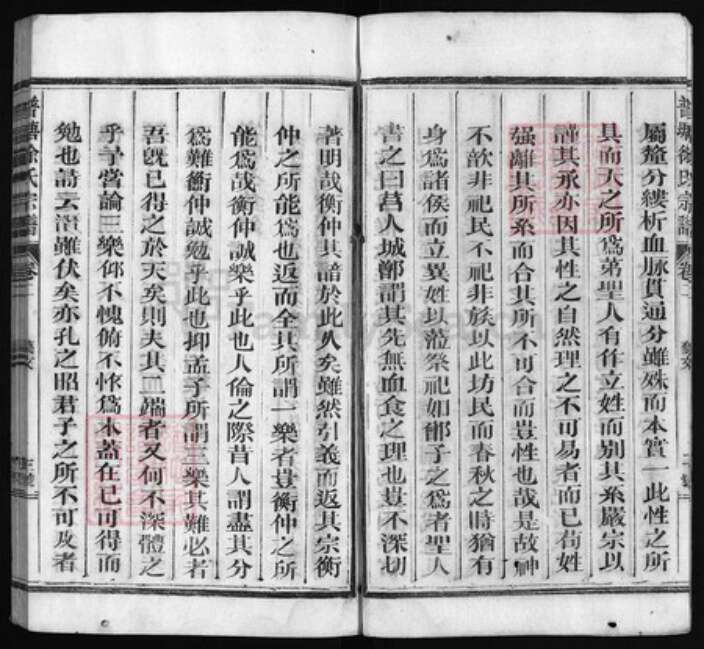 屬釐分縷析血脉貫通分雖殊而本實一此性之所
具而天之所為第聖人有作立姓而別其系嚴宗以
謹其承亦因其性之自然理之不可易者而已苟姓
强離其所系而合其所不可合而豈性也哉是故神
不歆非祀民不祀非族以此坊民而春秋之時猶有
身為諸侯而立異姓以蒞祭祀如鄫子之為者聖人
書之曰莒人滅鄫謂其先無血食之理也豈不深切
著明哉衡仲其諳於此久矣雖然引義而返其宗衡
仲之所能為也返而全其所謂一樂者豈衡仲之所
能為哉衡仲誠樂乎此也人倫之際昔人謂盡其分
為難衡仲誠勉乎此也抑孟子所謂三樂其難必者
吾既已得之於天矣則夫其二端者又何不深體之
乎予嘗論三樂仰不愧俯不怍為本蓋在已可得而
勉也詩云潛雖伏矣亦孔之昭君子之所不可及者
普塘徐氏宗譜 卷 藝文